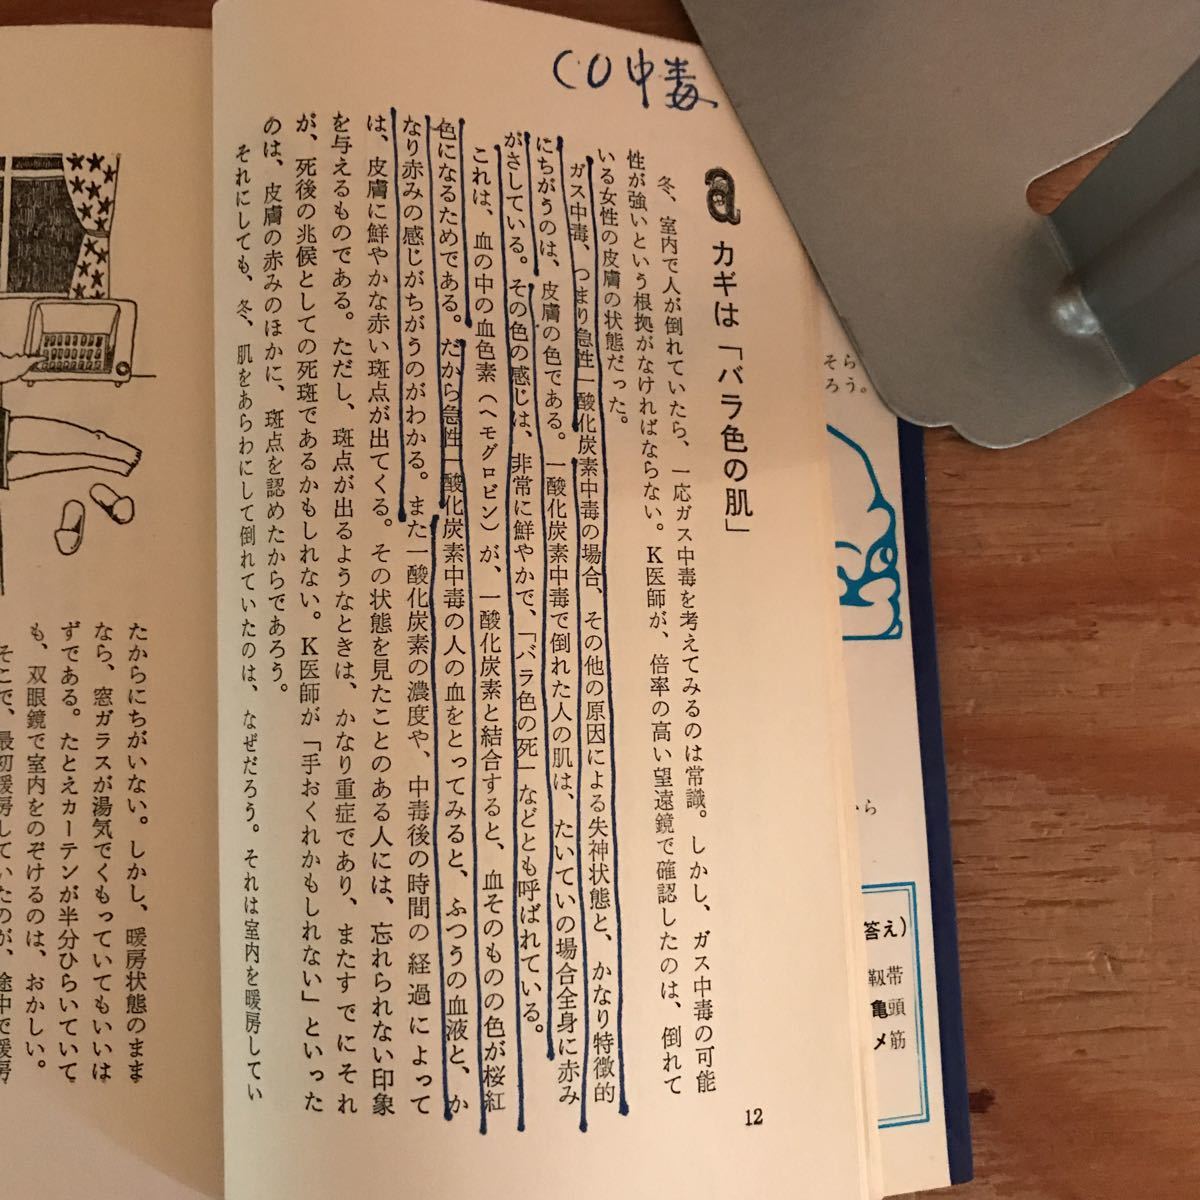 CO中毒
a カギは「バラ色の肌」
冬、室内で人が倒れていたら、一応ガス中毒を考えてみるのは常識。しかし、ガス中毒の可能
性が強いという根拠がなければならない。K医師が、倍率の高い望遠鏡で確認したのは、倒れて
いる女性の皮膚の状態だった。
ガス中毒、つまり急性一酸化炭素中毒の場合、その他の原因による失神状態と、かなり特徴的
にちがうのは、皮膚の色である。一酸化炭素中毒で倒れた人の肌は、たいていの場合全身に赤み
がさしている。その色の感じは、非常に鮮やかで、「バラ色の死」などとも呼ばれている。
これは、血の中の血色素(ヘモグロビン)が、一酸化炭素と結合すると、血そのものの色が桜紅
色になるためである。だから急性一酸化炭素中毒の人の血をとってみると、ふつうの血液と、か
なり赤みの感じがちがうのがわかる。また一酸化炭素の濃度や、中毒後の時間の経過によって
は、皮膚に鮮やかな赤い斑点が出てくる。その状態を見たことのある人には、忘れられない印象
を与えるものである。ただし、斑点が出るようなときは、かなり重症であり、またすでにそれ
が、死後の兆候としての死斑であるかもしれない。K医師が「手おくれかもしれない」といった
のは、皮膚の赤みのほかに、斑点を認めたからであろう。
それにしても、冬、肌をあらわにして倒れていたのは、なぜだろう。それは室内を暖房してい
12
たからにちがいない。しかし、暖房状態のまま
なら、窓ガラスが湯気でくもっていてもいいは
ずである。たとえカーテンが半分ひらいていて
も、双眼鏡で室内をのぞけるのは、おかしい。
そこで、最初暖房していたのが、途中で暖房
そら
ろう。
から
答え)
靱帯
亀頭
メ筋